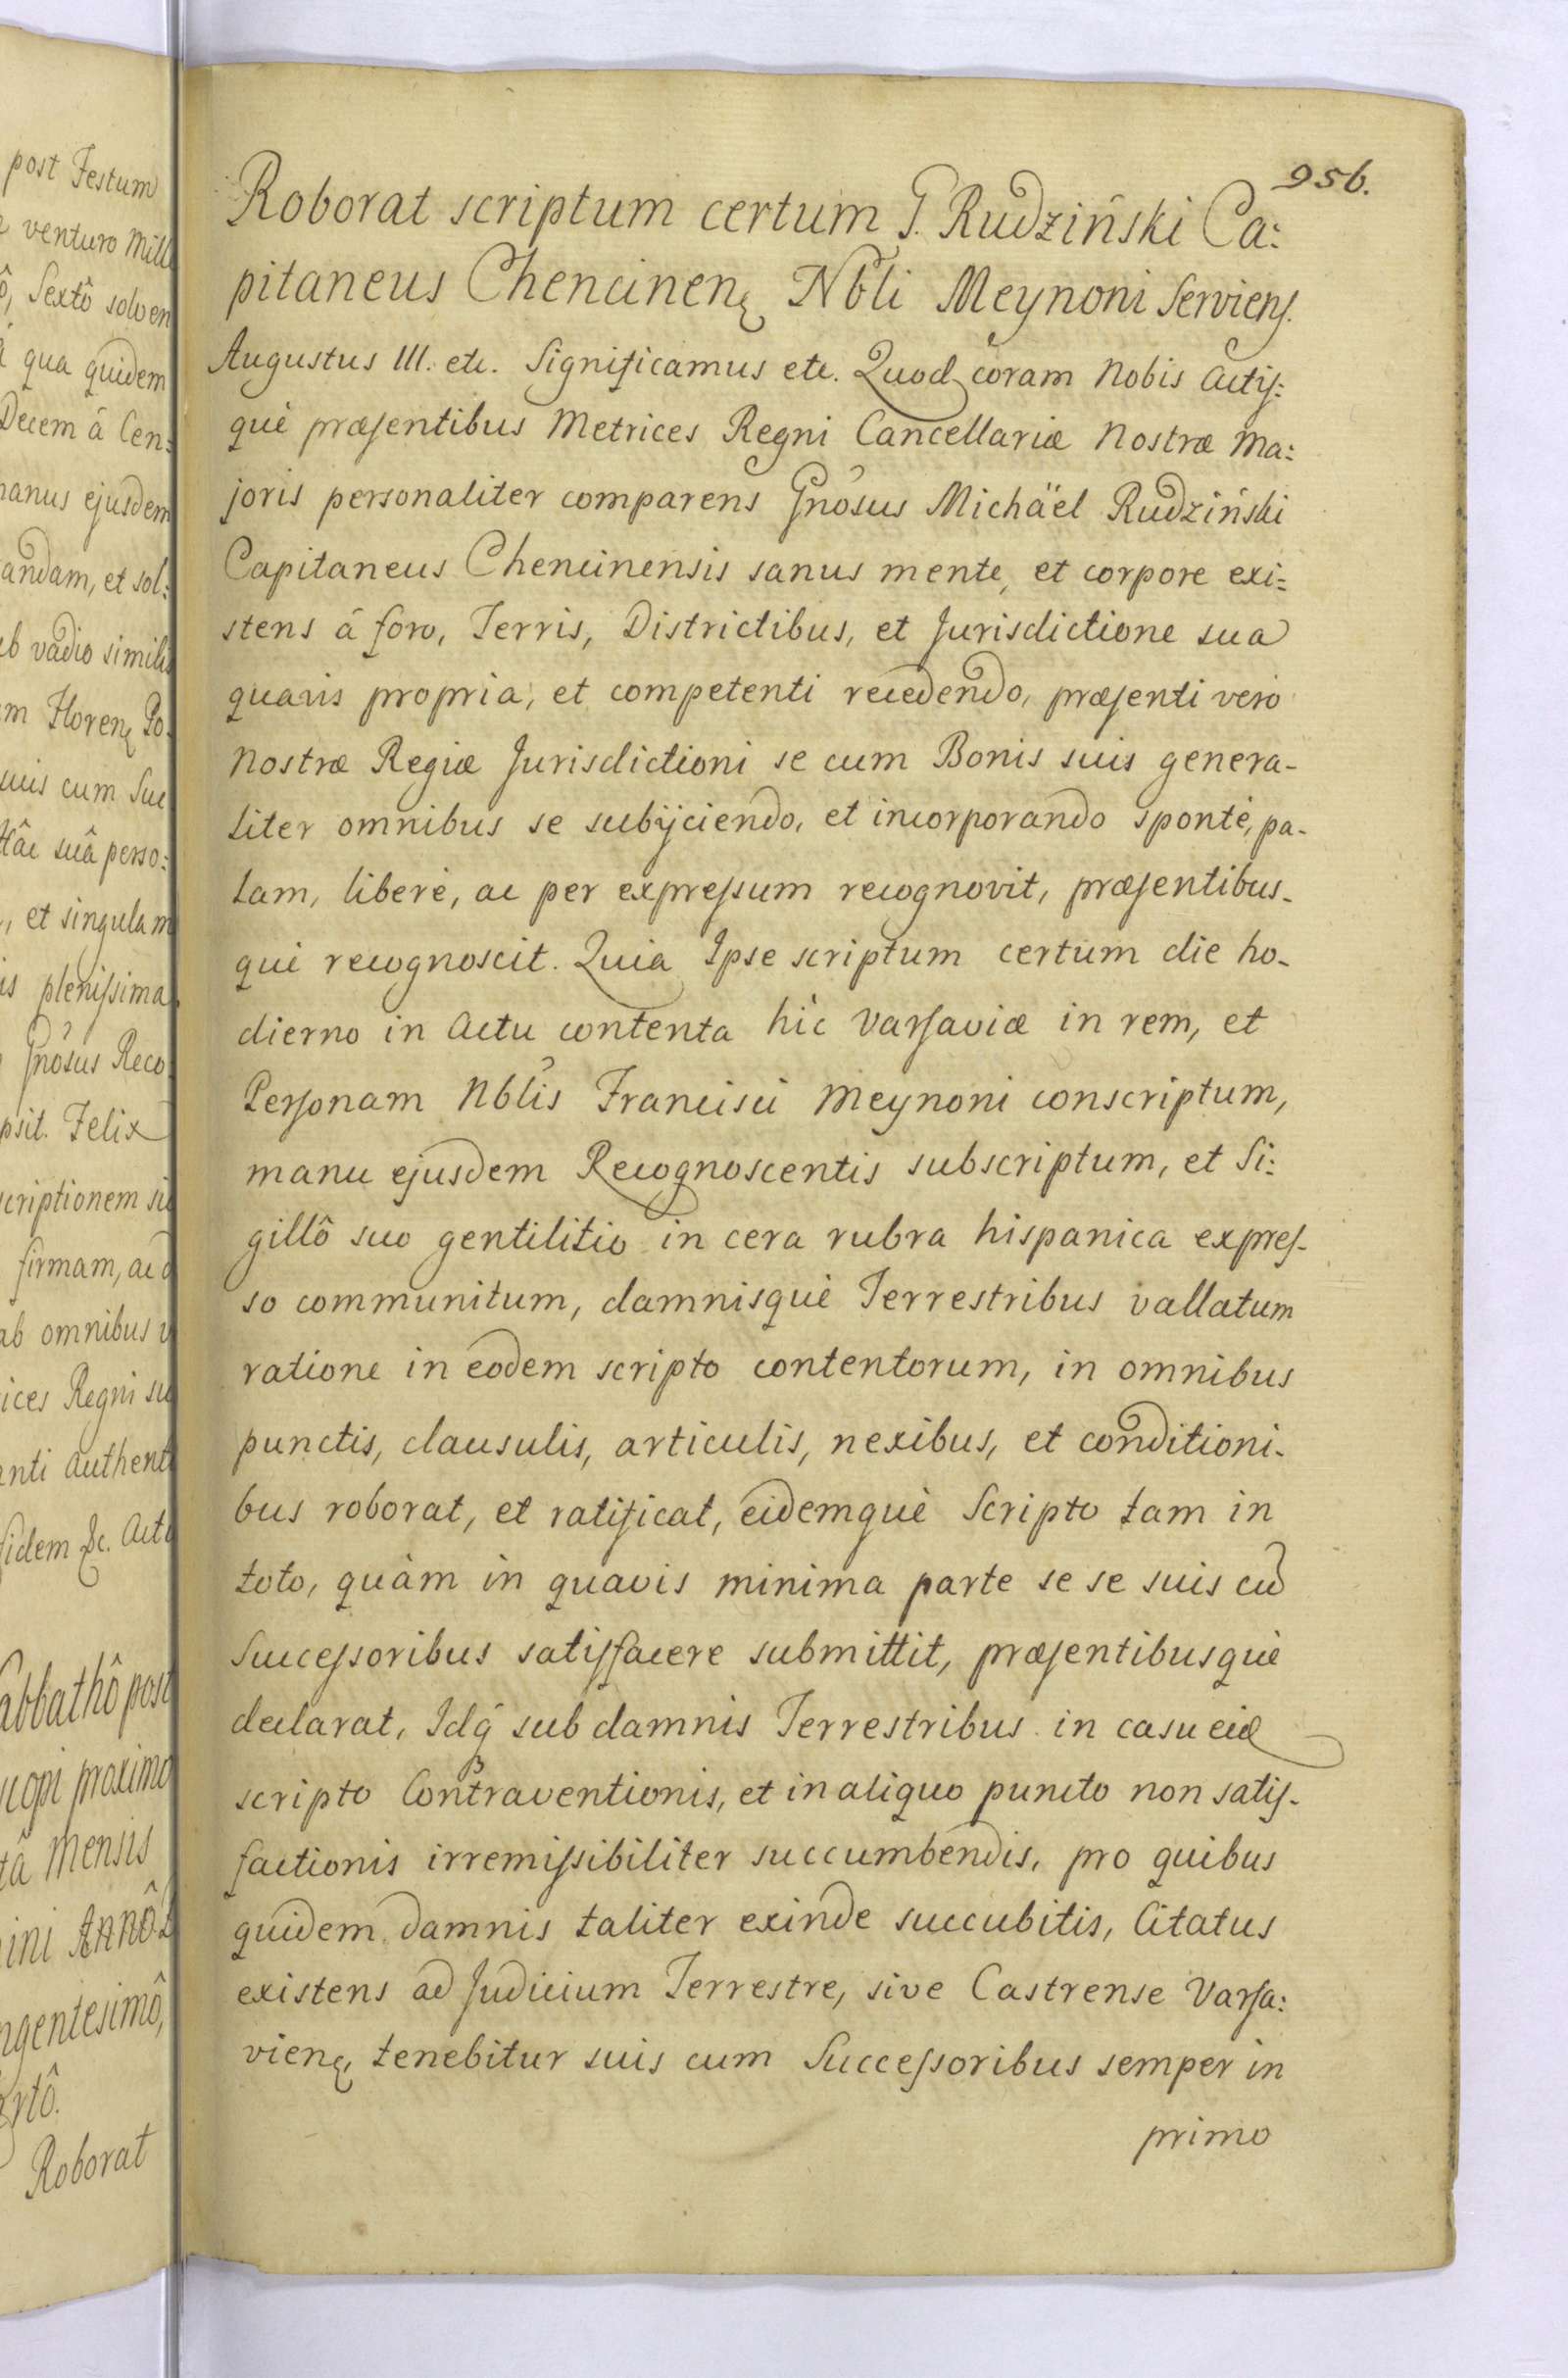 post Festum
venturo Mill
ô, Sextô solven
qua quidem
Decem â Cen:
manus ejusdem
andam, et sol:
vadio simili
Floren Po
cum Suc
suâ perso:
, et singulam
plenissima
Gnosus Reco
psit. Felix
scriptionem
firmam, ac
ab omnibus
ices Regni
anti authent
fidem &c. Act
abbathô post
proximo
tâ Mensis
ini Annô
ngentesimô,
rtô.
Roborat
956.
Roborat scriptum certum G. Rudziński Ca:
pitaneus Chencinen Nbli Meynoni Serviens.
Augustus III. etc. Significamus etc. Quod coram Nobis Actis:
què præsentibus Metrices Regni Cancellariæ Nostræ Ma:
joris personaliter comparens Gnosus Michäel Rudziński
Capitaneus Chencinensis sanus mente, et corpore exi=
stens â foro, Terris, Districtibus, et Jurisdictione sua
quavis propria, et competenti recedendo, præsenti verò
Nostræ Regiæ Jurisdictioni se cum Bonis suis genera-
liter omnibus se subijciendo, et incorporando spontè, pa-
lam, liberè, ac per expressum recognovit, præsentibus-
què recognoscit. Quia Ipse scriptum certum die ho-
dierno in Actu contenta hìc Varsaviæ in rem, et
Personam Nblis Francisci Meynoni conscriptum,
manu ejusdem Recognoscentis subscriptum, et Si:
gillô suo gentilitio in cera rubra hispanica expres-
so communitum, damnisquè Terrestribus vallatum
ratione in eodem scripto contentorum, in omnibus
punctis, clausulis, articulis, nexibus, et conditioni-
bus roborat, et ratificat, eidemquè Scripto tam in
toto, quàm in quavis minima parte se se suis cū
Successoribus satisfacere submittit, præsentibusquè
declarat, Idq̃ sub damnis Terrestribus in casu eid
scripto Contraventionis, et in aliquo puncto non satis-
factionis irremissibiliter succumbendis, pro quibus
quidem damnis taliter exinde succubitis, Citatus
existens ad Judicium Terrestre, sive Castrense Varsa:
vien, tenebitur suis cum Successoribus semper in
primo